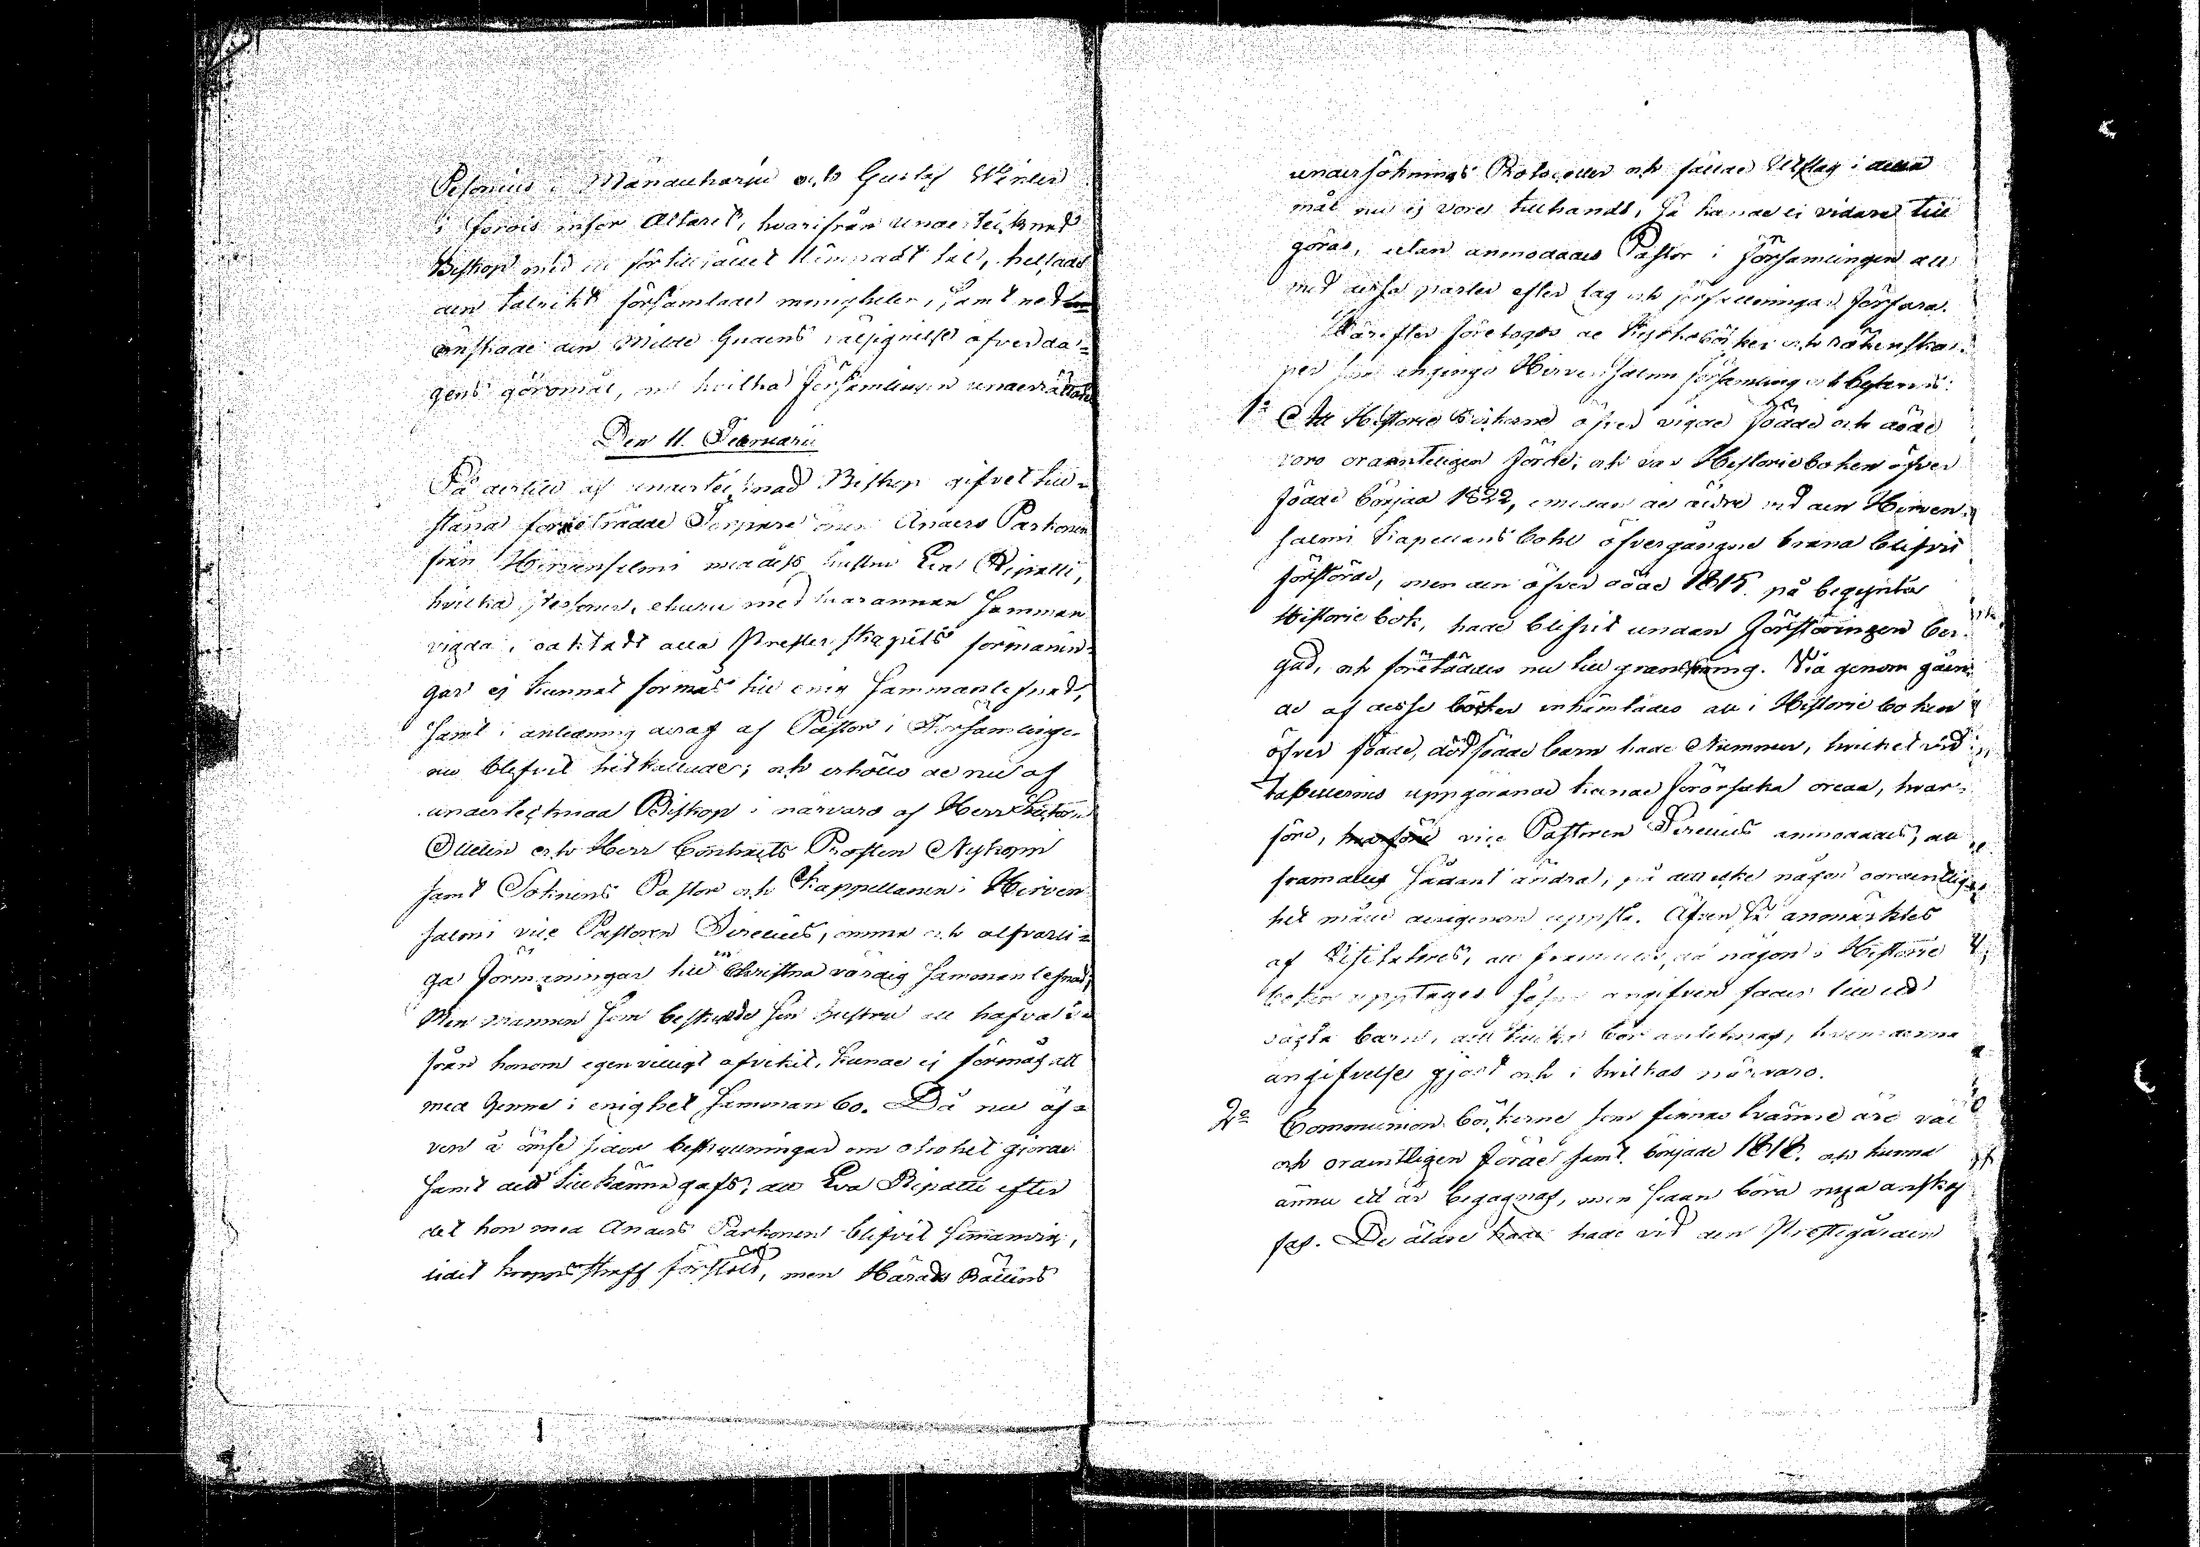 Pesonius i Mänduharju och Gustaf Winter
i forois inför Altaret, hvarifrån undertecknad
Biskop med ett för tillfället lämpadt tal, helsade
den talrikt församlade menigheten, samt ned
önskade den Milde Gudens välsignelse öfver da=
gens göromål, om hvilka Församlingen underrättades
Den 11. Februarii
På dertill af undertecknad Biskop gifvet till=
stånd företrädde Torpare Anders Parkonen
från Hirvensalmi med dess hustru Eva Ripatti,
hvilka personer, ehuru med hvarannan samman
vigda, oaktadt alla Presterskapets förmanin=
gar ej kunnat förmås till enig sammanlefnad,
samt i anledning deraf af Pastor i Församlingen
nu blifvit hitkallade; och erhöllo de nu af
undertecknad Biskop i närvaro af Herr Lectorn
och Herr Contracts Prosten Nykopp
samt Soknens Pastor och Kappellanen i Hirven
salmi vice Pastoren Sirelius, ömma och alfvarli=
ga förmaningar till en Christna värdig sammanlefnad;
Men mannen som beskyllde sin hustru att hafva i=
från honom egenvilligt afvikit, kunde ej förmås att
med henne i enighet samman bo. Då nu äf=
ven å ömse sidor beskyllningar om otrohet gjordes
samt det tillkännagafs, att Eva Ripatti efter
det hon med Anders Parkonen blifvit sammanvig,
lidit kroppsstraff för stöld, men Härads Rättens
undersöknings Protocoller och fällde Utslag i detta
mål nu ej voro tillhands, så kunde ej vidare till
göras, utan anmodades Pastor i Församlingen att
med dessa parter efter lag och författningar förfara.
Därefter företogos de Kyrkoböcker och räkenska=
per som angingo Hirvensalmi församling och befanns:
1o Att Historie Böckerne öfver vigde födde och döde
voro ordentligen förde; och var Historieboken öfver
födde började 1822, emedan de äldre vid den Hirven=
salmi Kapellans bohl öfvergångne brand blifvit
förstörde, men den öfver döde 1815. på begynta
Historie bok, hade blifvit undan förstöringen ber=
gad, och företeddes nu till granskning. Vid genomgåen=
de af desse böcker inhämtades att i Historie boken
öfver födde, dödfödde barn hade Nummer, hvilket vid
tabellernes uppgörande kunde förorsaka oreda, hvar=
före, vice Pastoren Sirelius anmodades, att
framdeles sådant ändra, på det icke någon oordentlig=
het måtte derigenom uppstå. Äfven så anmärktes
af Visitator, att framdeles, då någon i Historie
boken upptages såsom angifven fader till
oägta barn, det tillika bör antecknas, hvem denna
angifvelse gjort och i hvilkas närvaro.
2o Communion böckerne som finnas tvänne äro väl
och ordentligen förde samt började 1818. och kunna
ännu ett år begagnas, men sedan böra nya anskaf
fas. De äldre hade vid den Prestegården